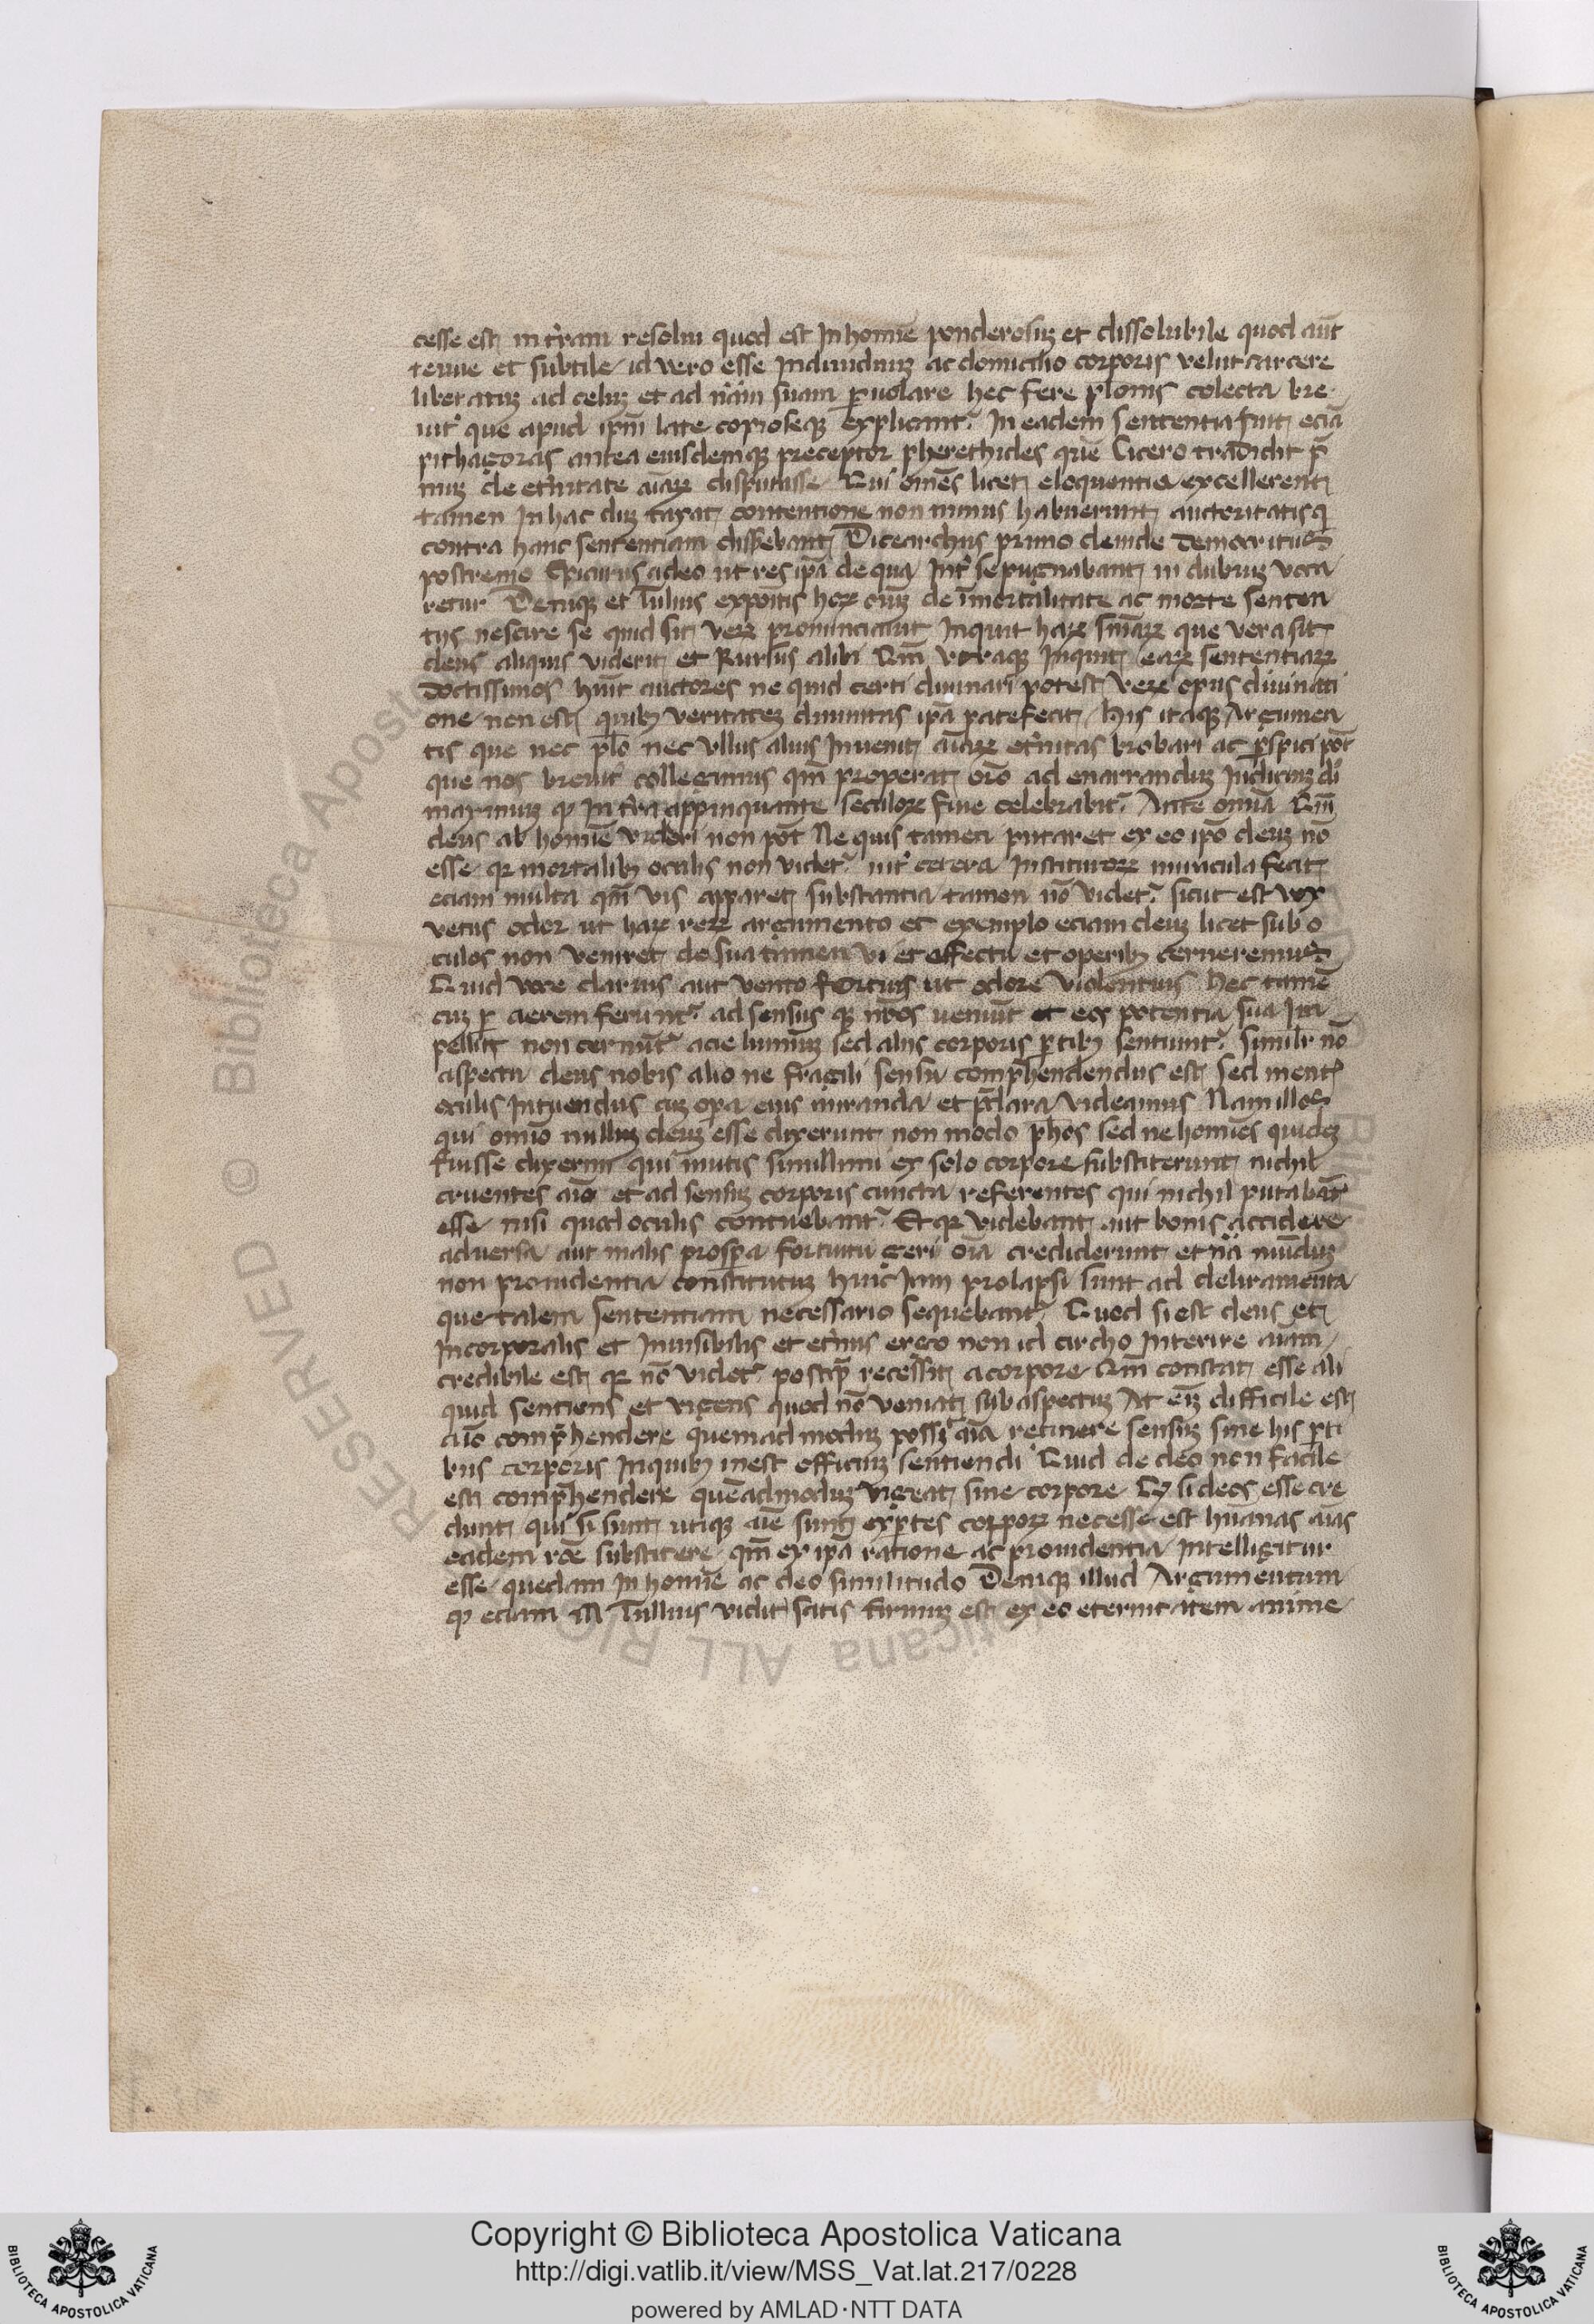 cesse est in t'ram resolui quod est In homīe ponderosuȝ et dissolubile quod aūt
tenue et subtile id vero esse Indiuiduuȝ ac domicilio corporis velut carcere
liberatuȝ ad celuȝ et ad nām suam ꝑuolare hec fere platonis colecta bre
uit' que apud ipm̄ late copioseqȝ explicant' In eadem sententia fuit eciā
pithagoras antea eiusdemqȝ preceptor pherethides quē Cicero tradidit p̄
muȝ de et'nitate aīaꝝ disputasse Qui om̄es licet eloquentia excellerent
tamen In hac duȝ taxat contentione non minus habuerunt auctoritatis q̄
contra hanc sententiam disserebant Dicearchus primo deinde democritus
postremo Epicurus adeo ut res ipā de qua Int' se pugnabant in dubiuȝ voca
retur Deniqȝ et Tulius expoītis hoꝝ om̄iuȝ de īmortalitate ac morte senten
tijs nescire se quid sit veꝝ pronunciauit Inquit haꝝ sniāꝝ que vera sit
deus aliquis viderit et Rursus alibi Qm̄ vtraqȝ Inquit eaꝝ sententiaꝝ
doctissimos huīt auctores ne quid certi diuinari potest veꝝ opus diuinati
one non est quibȝ veritateȝ diuinitas ipā patefecit His itaqȝ Argumen
tis que nec plō nec vllus alius Inuenit aīaꝝ et'nitas probari ac ꝑspici pōt
que nos breuit' collegimus qm̄ properat orō ad enarranduȝ Iudiciuȝ di
maximuȝ qd In t'ra appinquante seculoꝝ fine celebrabit' Ante omīa Qm̄
deus ab homīe videri non pōt Ne quis tamen putaret ex eo ipō deuȝ nō
esse qꝛ mortalibȝ oculis non videt' int' cetera Institutoꝝ miracula fecit
eciam multa qm̄ vis apparet substantia tamen nō videt' sicut est vox
vetus odor ut haꝝ reꝝ argumento et exemplo eciam deuȝ licet sub o
culos non veniret de sua tamen vi et effectu et operibȝ cerneremus
Quid voce clarius aut vento fortius ut odore violentius Hec tamē
cuȝ ꝑ aerem ferunt' ad sensus qȝ nr̄os veniūt et eos potentia sua Im
pellūt non cernūt' acie luminuȝ sed alijs corporis ꝑtibȝ sentiunt' similr' nō
aspectu deus nobis alio ne fragili sensu compr̄hendendus est sed ment'
oculis Intuendus cuȝ opa eius miranda et pclara videamus Nam illos
qui omīo nulluȝ deuȝ esse dixerunt non modo ph̄os sed ne homīes quideȝ
fuisse dixerim qui mutis simillimi ex solo corpore substiterunt nichil
cruentes aīo et ad sensuȝ corporis cuncta referentes qui nichil putabāt
esse nisi quod oculis contuebant' Et qꝛ videbant aut bonis accidere
adversa aut malis prospa fortuitu geri oīa crediderunt et nā munduȝ
non prouidentia constitutuȝ huic Iam prolapsi sunt ad deliramenta
que talem sententiam necessario sequebant' Quod si est deus et
Incorporalis et Inuisibilis et et'nus ergo non id circho Interire aīam
credibile est qꝛ nō videt' postq̄ recessit a corpore Qm̄ constat esse ali
quid sentiens et vigens quod nō veniat sub aspectuȝ At eīȝ difficile est
aīo compr̄hendere quemadmoduȝ possȝ aīa retinere sensuȝ sine his ꝑti
bus corporis In quibȝ inest officiuȝ sentiendi Quid de deo non facile
est compr̄hendere quēadmoduȝ vigeat sine corpore Qȝ si deos esse cre
dunt qui si sunt utiqȝ aīe sunt exꝑtes corpoꝝ necesse est hūanas aīas
eadem rōe substitere qm̄ ex ipā ratione ac prouidentia Intelligitur
esse quedam In homīe ac deo similitudo Deniqȝ illud Argumentum
qd eciam M Tullius vidit satis firmuȝ est ex eo eternitatem anime
Copyright © Biblioteca Apostolica Vaticana
http://digi.vatlib.it/view/MSS_Vat.lat.217/0228
powered by AMLAD·NTT DATA